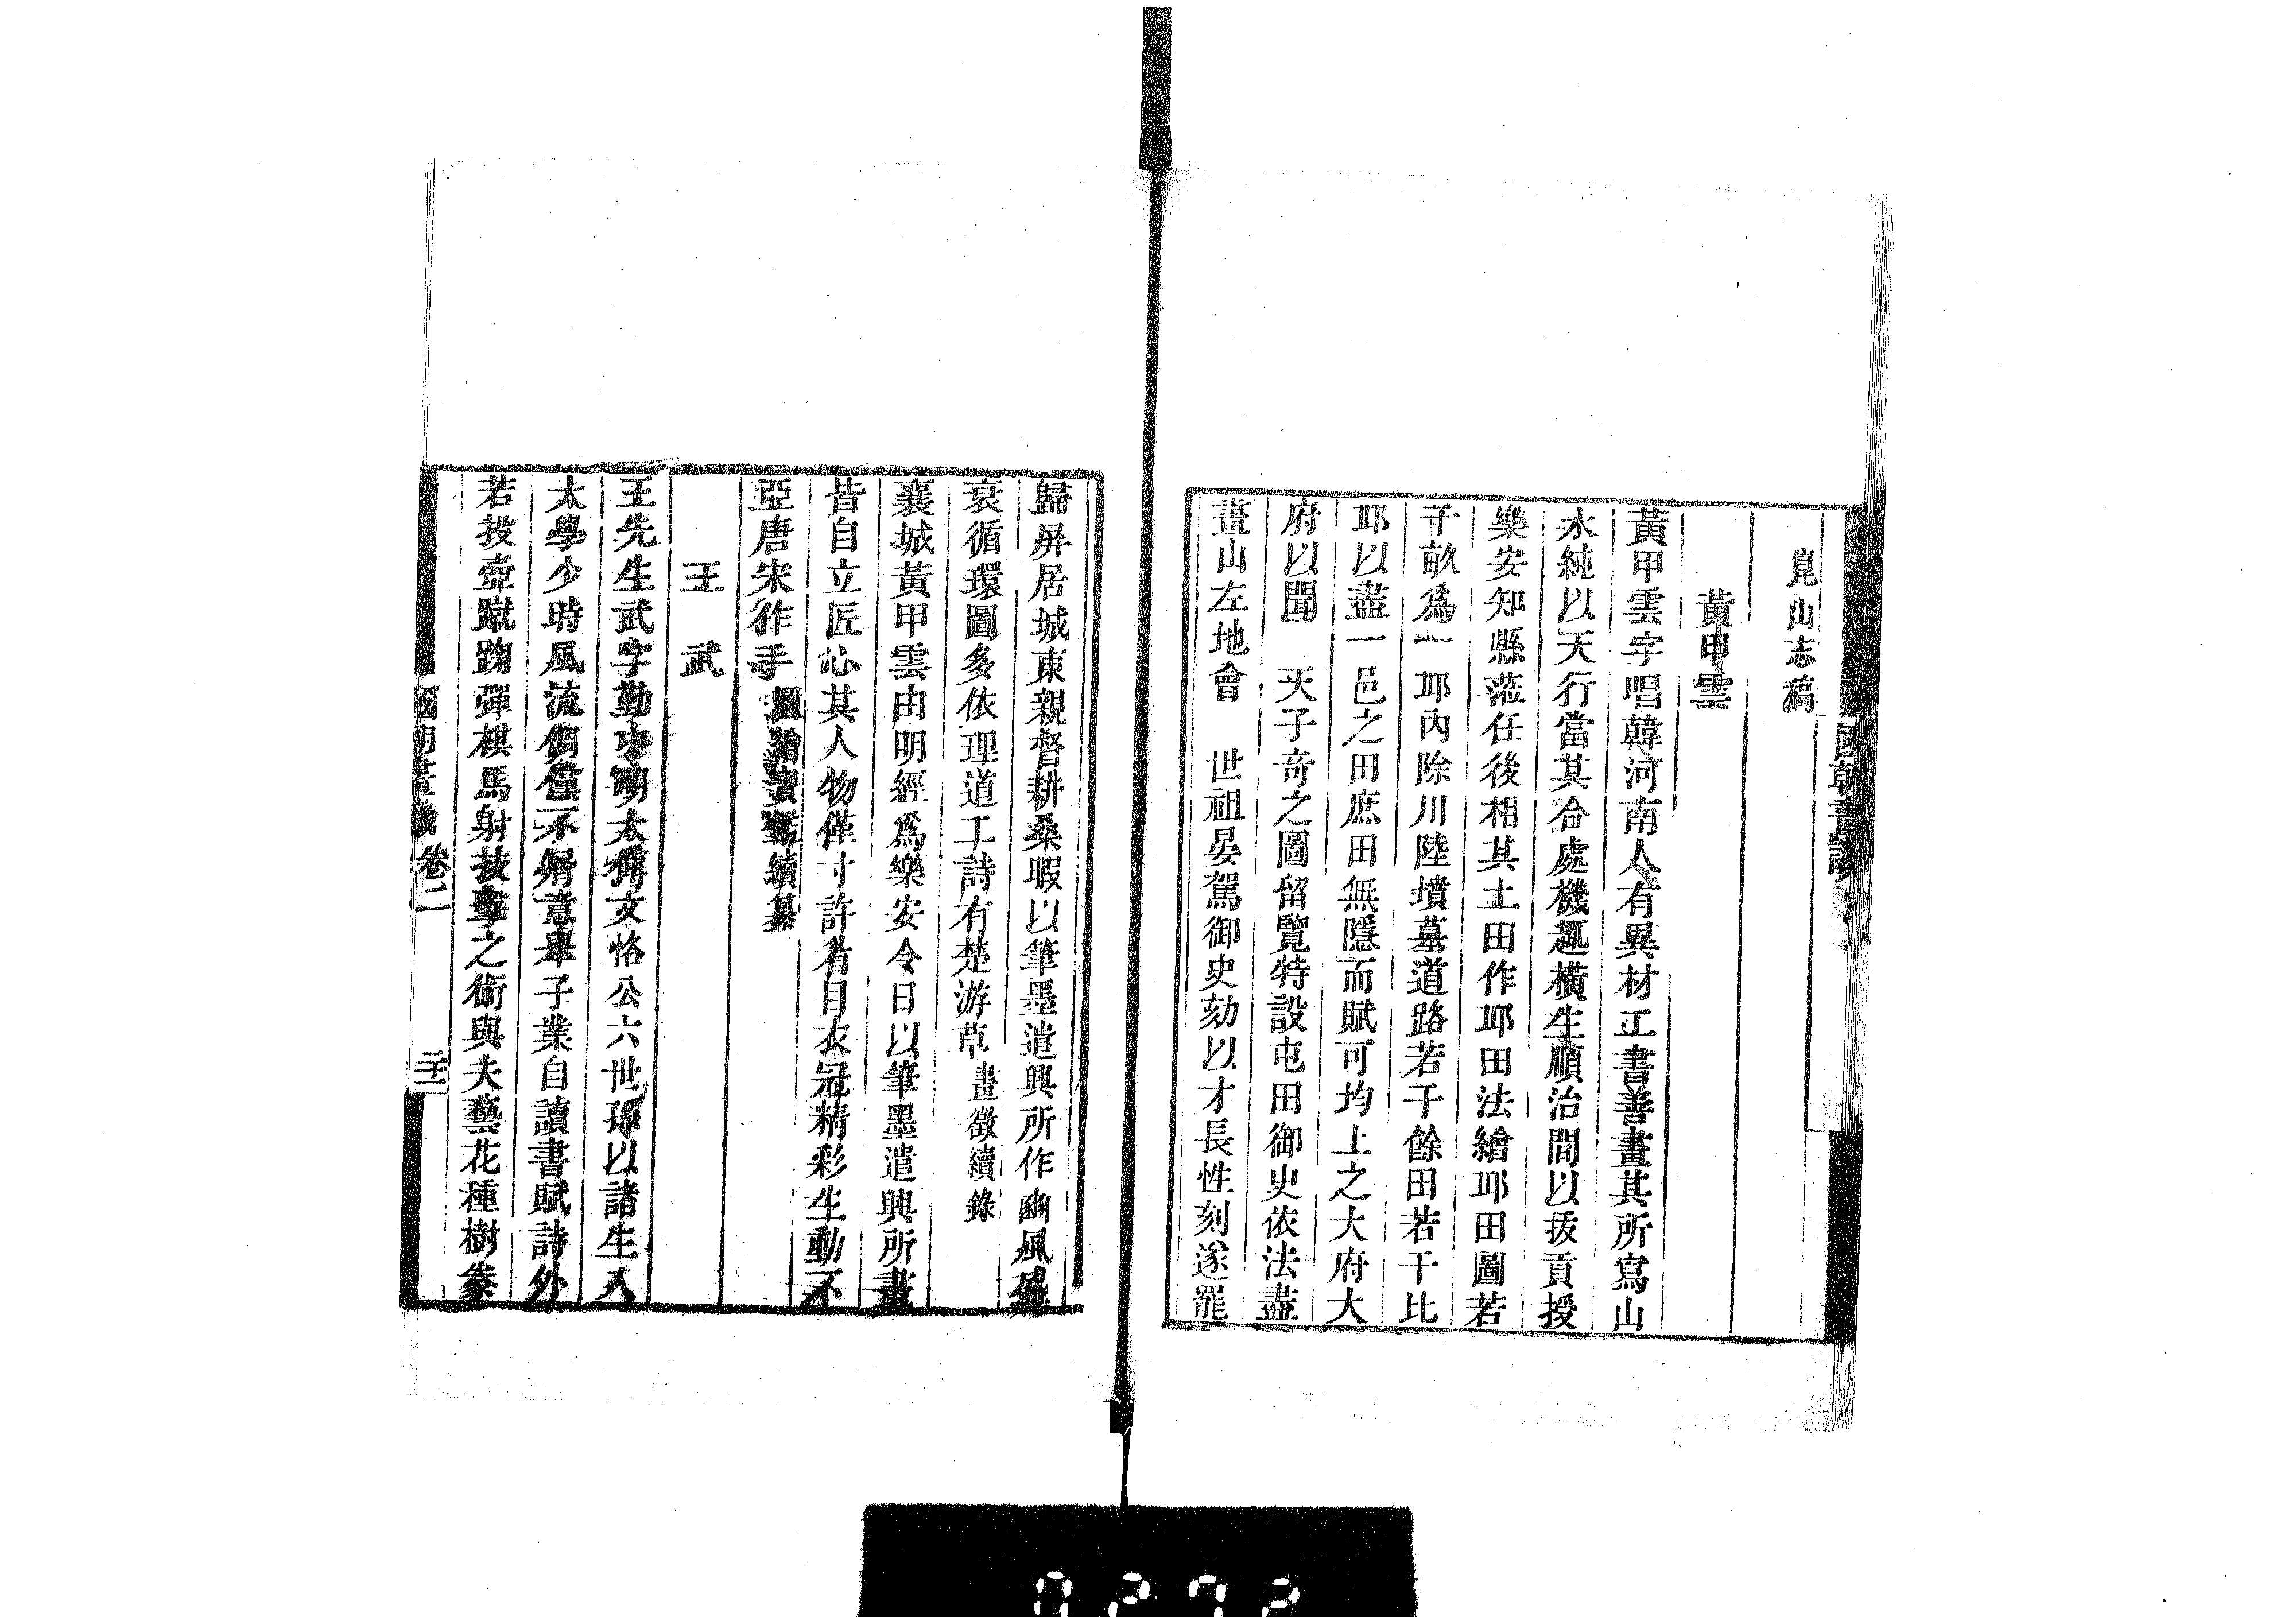 國朝書
崑山志稿
黃甲雲
黃甲雲字唱韓河南人有異材工書善畫其所寫山
水純以天行當其合處機趣橫生順治間以拔貢授
樂安知縣蒞任後相其土田作邱田法繪邱田圖若
干畝爲一邱內除川陸墳墓道路若干餘田若干比
邱以盡一邑之田庶田無隱而賦可均上之大府大
府以聞　天子奇之圖留覽特設屯田御史依法盡
畫山左地會　世祖晏駕御史劾以才長性刻遂罷
歸屏居城東親督耕桑暇以筆墨遣興所作豳風盛
衰循環圖多依理道工詩有楚游草畫徵續錄
襄城黃甲雲由明經爲樂安令日以筆墨遣興所畫
皆自立匠心其人物僅寸許眉目衣冠精彩生動不
亞唐宋作手圖繪寶鑑續纂
王　武
王先生武字勤中明太傅文恪公六世孫以諸生入
太學少時風流倜儻不屑意舉子業自讀書賦詩外
若投壺蹴踘彈棋馬射技擊之術與夫藝花種樹豢
國朝書 卷二
二十二
0272